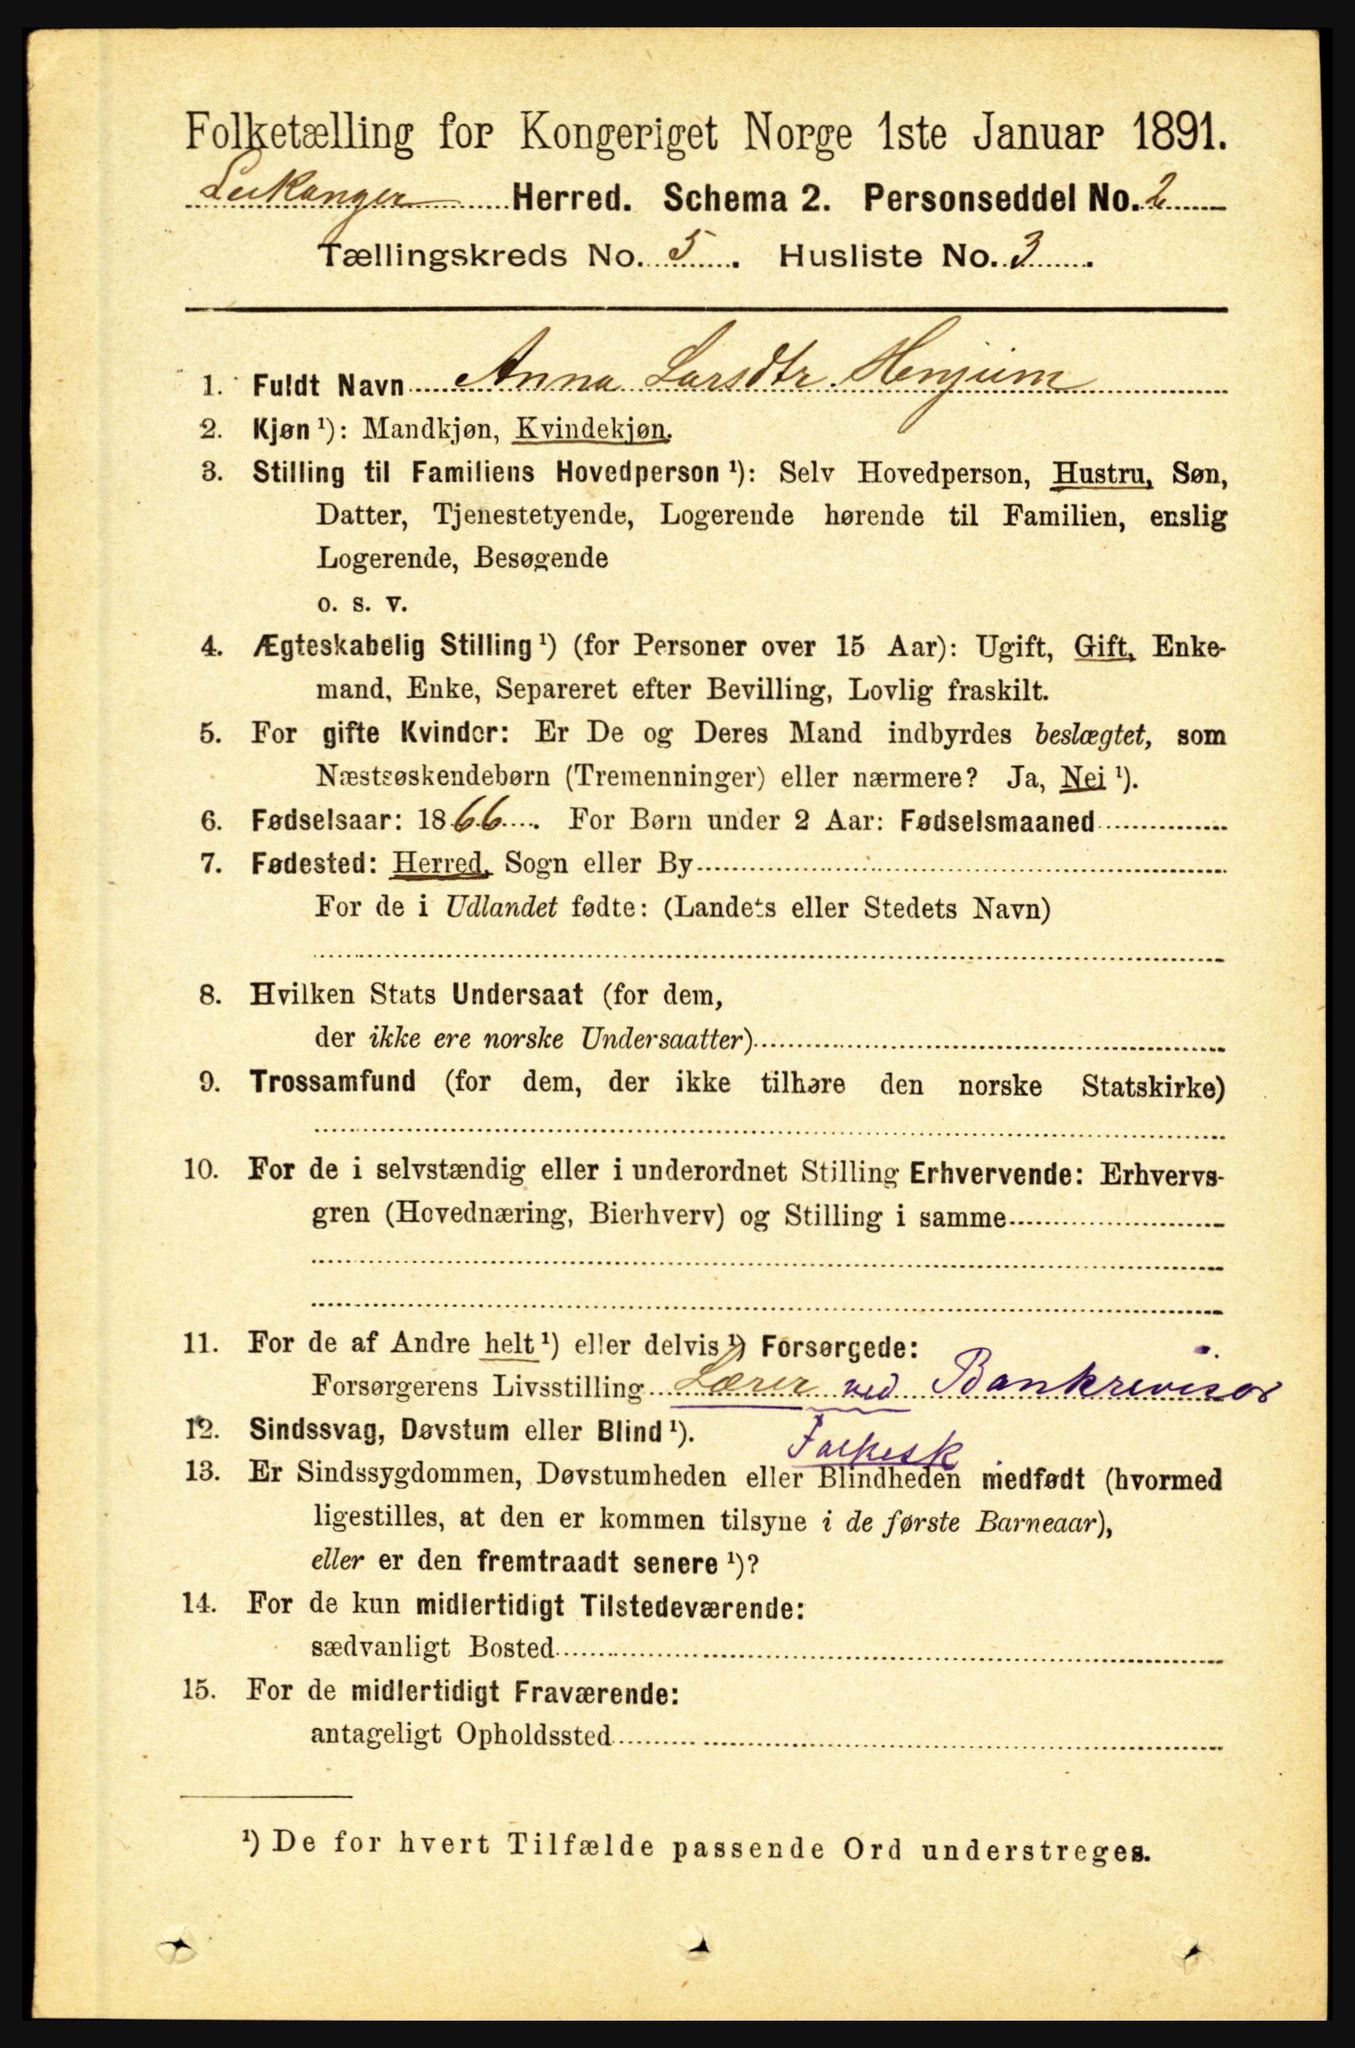 Folketælling for Kongeriget Norge 1ste Januar 1891.
Leikanger Herred. Schema 2. Personseddel No. 2
Tællingskreds No. 5. Husliste No. 3.
1. Fuldt Navn Anna Larsdtr. Henjum
2. Kjøn ¹): Mandkjøn, Kvindekjøn.
3. Stilling til Familiens Hovedperson ¹): Selv Hovedperson, Hustru, Søn,
Datter, Tjenestetyende, Logerende hørende til Familien, enslig
Logerende, Besøgende
o. s. v.
4. Ægteskabelig Stilling ¹) (for Personer over 15 Aar): Ugift, Gift, Enke-
mand, Enke, Separeret efter Bevilling, Lovlig fraskilt.
5. For gifte Kvinder: Er De og Deres Mand indbyrdes beslægtet, som
Næstsøskendebørn (Tremenninger) eller nærmere? Ja, Nei ¹).
6. Fødselsaar: 1866. For Børn under 2 Aar: Fødselsmaaned
7. Fødested: Herred, Sogn eller By
For de i Udlandet fødte: (Landets eller Stedets Navn)
8. Hvilken Stats Undersaat (for dem,
der ikke ere norske Undersaatter)
9. Trossamfund (for dem, der ikke tilhøre den norske Statskirke)
10. For de i selvstændig eller i underordnet Stilling Erhvervende: Erhvervs-
gren (Hovednæring, Bierhverv) og Stilling i samme
11. For de af Andre helt ¹) eller delvis ¹) Forsørgede:
Forsørgerens Livsstilling Lærer ved Bankrevisor
12. Sindssvag, Døvstum eller Blind ¹). Folkesk
13. Er Sindssygdommen, Døvstumheden eller Blindheden medfødt (hvormed
ligestilles, at den er kommen tilsyne i de første Barneaar),
eller er den fremtraadt senere ¹)?
14. For de kun midlertidigt Tilstedeværende:
sædvanligt Bosted
15. For de midlertidigt Fraværende:
antageligt Opholdssted
¹) De for hvert Tilfælde passende Ord understreges.